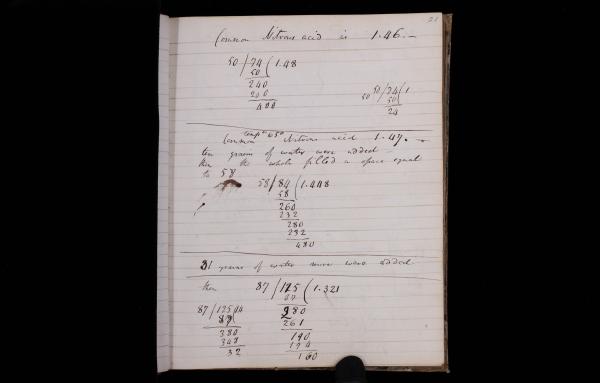 21
Common Nitrous acid is 1.46.—
50/74(1.48
50
240
200
400
50 50/74(1
50
24
temp 50
Common Nitrous acid 1.47.—
ten grains of water were added
then the whole filled a space equal
to 58
58/84(1.448
58
260
232
280
232
480
31 grains of water more were added
then 87/125(1.321
87
380
261
190
174
160
87/125.04(
87
380
348
32